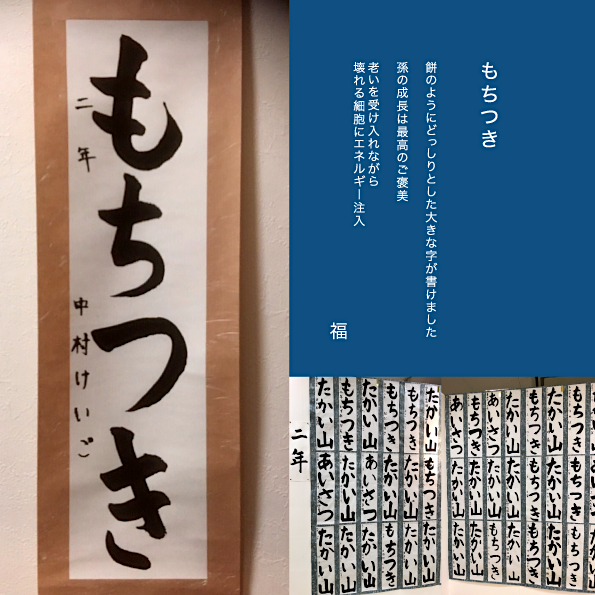 もちつき
二年
中村けいご
もちつき
餅のようにどっしりとした大きな字が書けました
孫の成長は最高のご褒美
老いを受け入れながら
壊れる細胞にエネルギー注入
福
二年
たかい山
もちつき
たかい山
もちつき
もちつき
たかい山
あいさつ
たかい山
あいさつ
たかい山
たかい山
もちつき
たかい山
たかい山
たかい山
もちつき
たかい山
たかい山
あいさつ
もちつき
あいさつ
たかい山
もちつき
たかい山
もちつき
たかい山
たかい山
たかい山
たかい山
もちつき
もちつき
もちつき
あいさつ
たかい山
たかい山
もちつき
たかい山
もちつき
たかい山
もちつき